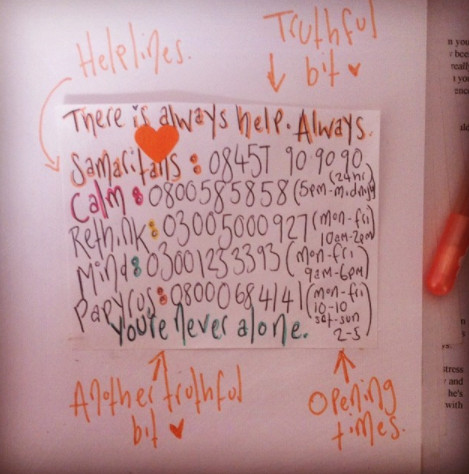 Helplines.
Truthful
bit ♥
There is always help. Always.
Samaritans : 08457 90 90 90 (24hr)
Calm : 0800585858 (5pm-midnight)
Rethink : 03005000927 (mon-fri
10am-2pm)
Mind : 03001233393 (mon-fri
9am-6pm)
Papyrus : 08000684141 (mon-fri
10-10
sat-sun
2-5)
You're never alone.
Another truthful
bit ♥
Opening
times.
stress
and
he's
with